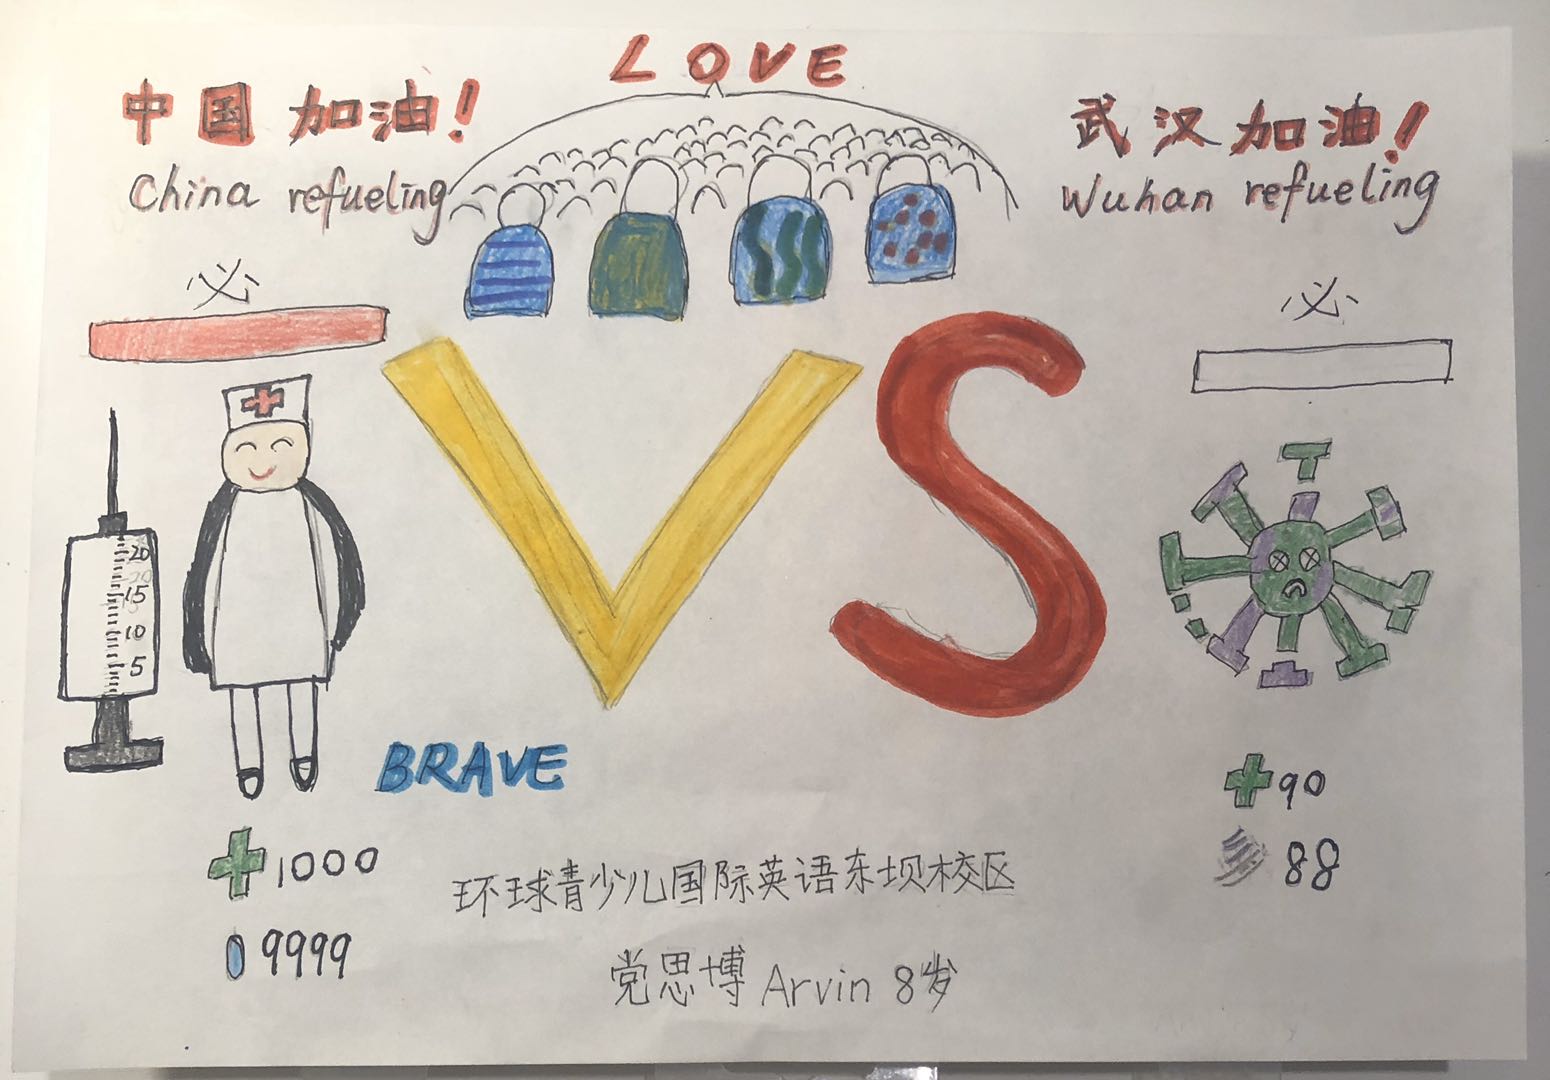 LOVE
中国加油!
China refueling
武汉加油!
Wuhan refueling
必
必
VS
20
15
10
5
BRAVE
+90
88
+1000
9999
环球青少儿国际英语东坝校区
党思博 Arvin 8岁